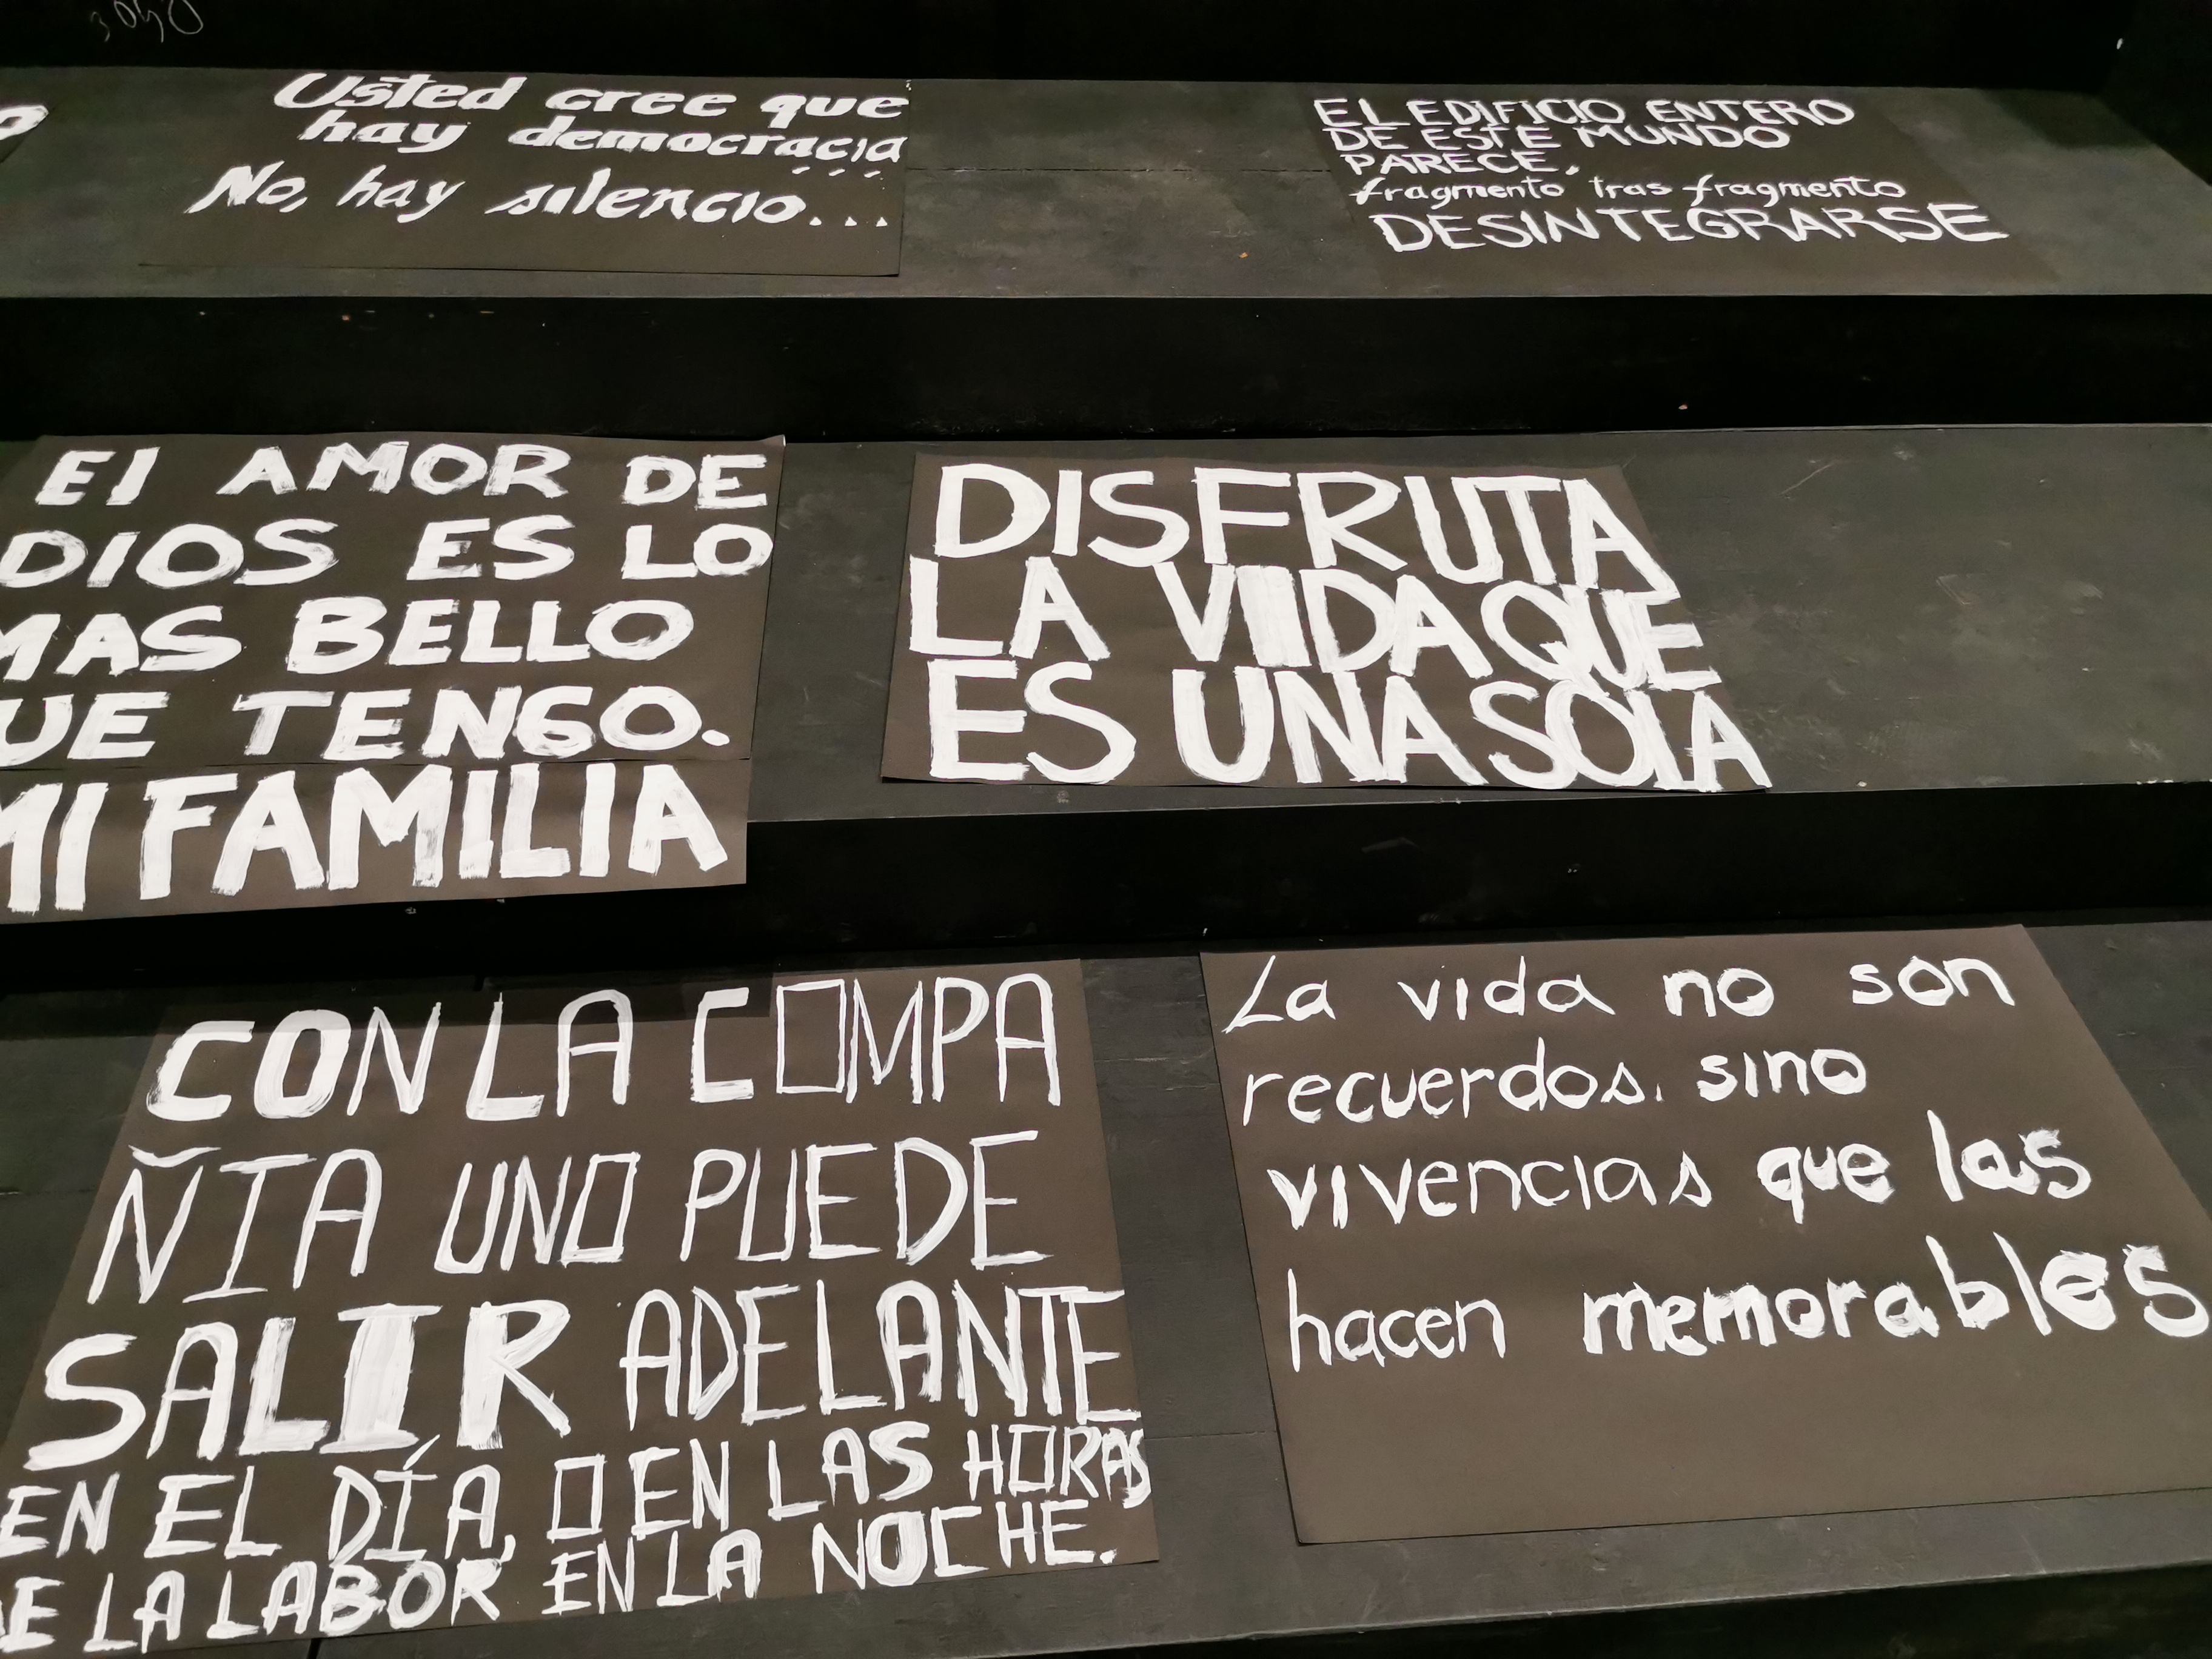 Usted cree que
hay democracia
...
No, hay silencio...
EL EDIFICIO ENTERO
DE ESTE MUNDO
PARECE,
fragmento tras fragmento
DESINTEGRARSE
El AMOR DE
DIOS ES LO
MAS BELLO
UE TENGO.
MI FAMILIA
DISFRUTA
LA VIDA QUE
ES UNA SOLA
CON LA COMPA
ÑIA UNO PUEDE
SALIR ADELANTE
EN EL DÍA, O EN LAS HORAS
E LA LABOR EN LA NOCHE.
La vida no son
recuerdos, sino
vivencias que las
hacen memorables